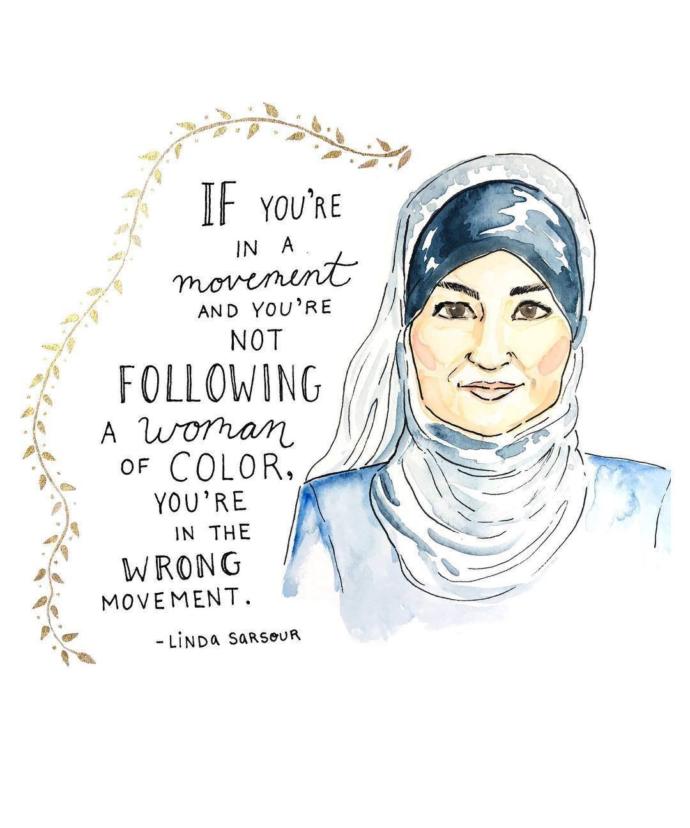 IF YOU'RE
IN A
movement
AND YOU'RE
NOT
FOLLOWING
A woman
OF COLOR,
YOU'RE
IN THE
WRONG
MOVEMENT.
-LINDA SARSOUR